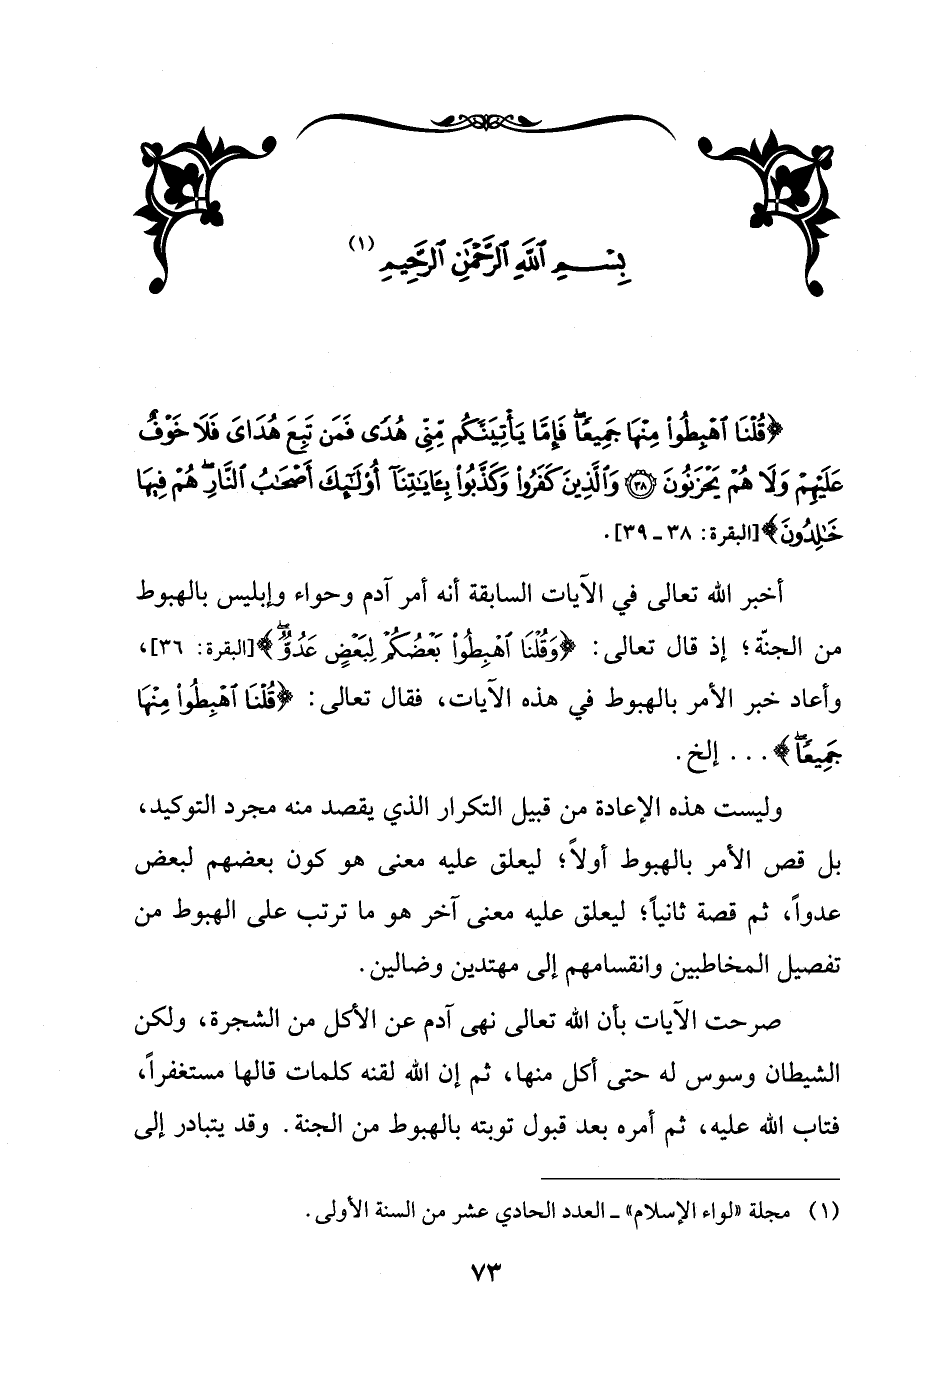 بِسْمِ ٱللَّهِ ٱلرَّحْمَٰنِ ٱلرَّحِيمِ (١)
﴿قُلْنَا ٱهْبِطُوا۟ مِنْهَا جَمِيعًا ۖ فَإِمَّا يَأْتِيَنَّكُم مِّنِّى هُدًى فَمَن تَبِعَ هُدَاىَ فَلَا خَوْفٌ
عَلَيْهِمْ وَلَا هُمْ يَحْزَنُونَ ٣٨ وَٱلَّذِينَ كَفَرُوا۟ وَكَذَّبُوا۟ بِـَٔايَـٰتِنَآ أُو۟لَـٰٓئِكَ أَصْحَـٰبُ ٱلنَّارِ ۖ هُمْ فِيهَا
خَـٰلِدُونَ﴾ [البقرة: ٣٨ - ٣٩].
أخبر الله تعالى في الآيات السابقة أنه أمر آدم وحواء وإبليس بالهبوط
من الجنّة؛ إذ قال تعالى: ﴿وَقُلْنَا ٱهْبِطُوا۟ بَعْضُكُمْ لِبَعْضٍ عَدُوٌّ ۖ﴾ [البقرة: ٣٦]،
وأعاد خبر الأمر بالهبوط في هذه الآيات، فقال تعالى: ﴿قُلْنَا ٱهْبِطُوا۟ مِنْهَا
جَمِيعًا ۖ﴾ . . . إلخ.
وليست هذه الإعادة من قبيل التكرار الذي يقصد منه مجرد التوكيد،
بل قص الأمر بالهبوط أولاً؛ ليعلق عليه معنى هو كون بعضهم لبعض
عدواً، ثم قصة ثانياً؛ ليعلق عليه معنى آخر هو ما ترتب على الهبوط من
تفصيل المخاطبين وانقسامهم إلى مهتدين وضالين.
صرحت الآيات بأن الله تعالى نهى آدم عن الأكل من الشجرة، ولكن
الشيطان وسوس له حتى أكل منها، ثم إن الله لقنه كلمات قالها مستغفراً،
فتاب الله عليه، ثم أمره بعد قبول توبته بالهبوط من الجنة. وقد يتبادر إلى
(١) مجلة «لواء الإسلام» - العدد الحادي عشر من السنة الأولى.
٧٣